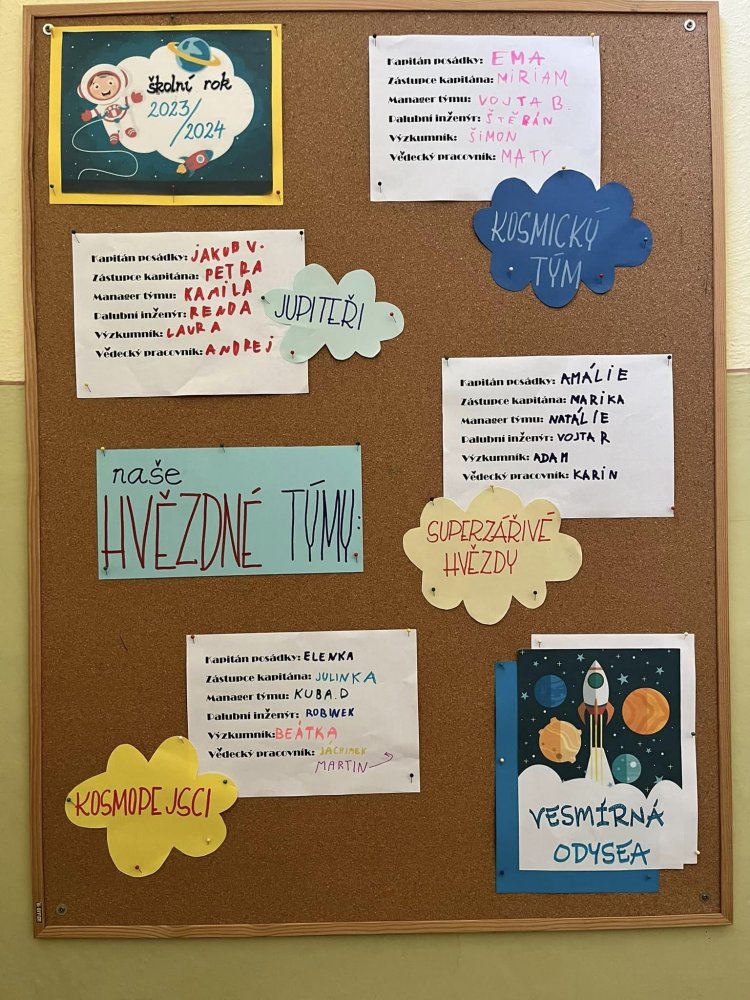 školní rok
2023/2024
Kapitán posádky: EMA
Zástupce kapitána: MIRIAM
Manager týmu: VOJTA B.
Palubní inženýr: ŠTĚPÁN
Výzkumník: ŠIMON
Vědecký pracovník: MATY
KOSMICKÝ
TÝM
Kapitán posádky: JAKUB V.
Zástupce kapitána: PETRA
Manager týmu: KAMILA
Palubní inženýr: RENDA
Výzkumník: LAURA
Vědecký pracovník: ANDREJ
JUPITEŘI
Kapitán posádky: AMÁLIE
Zástupce kapitána: MARIKA
Manager týmu: NATÁLIE
Palubní inženýr: VOJTA R
Výzkumník: ADAM
Vědecký pracovník: KARIN
SUPERZÁŘIVÉ
HVĚZDY
naše
HVĚZDNÉ TÝMY:
Kapitán posádky: ELENKA
Zástupce kapitána: JULINKA
Manager týmu: KUBA.D
Palubní inženýr: ROBINEK
Výzkumník: BEÁTKA
Vědecký pracovník: JÁCHIMEK
MARTIN
KOSMOPEJSCI
VESMÍRNÁ
ODYSEA